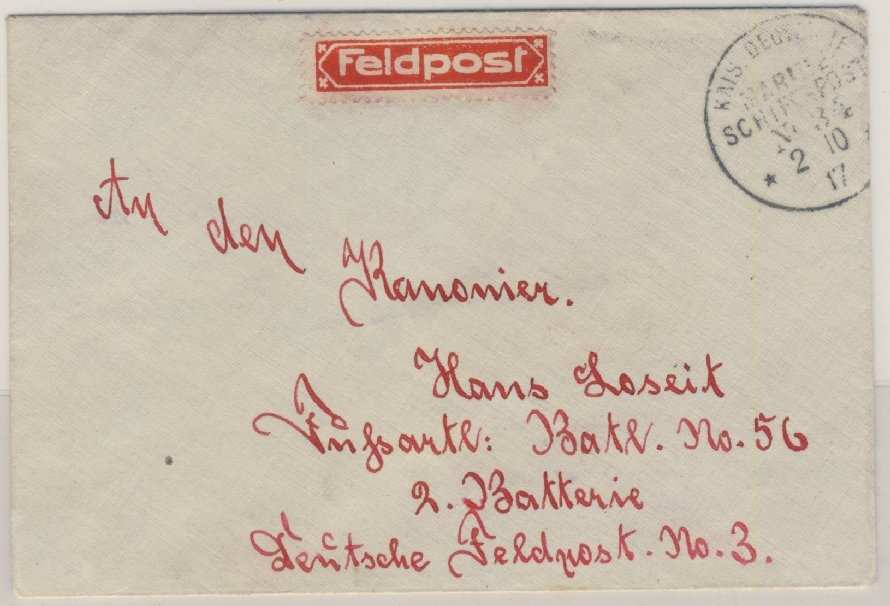 Feldpost
KAIS. DEUTSCHE
MARINE-
SCHIFFSPOST
No 34
* 2 10 *
17
An den
Kanonier.
Hans Loseit
Fußartl: Batl. No. 56
2. Batterie
Deutsche Feldpost. No. 3.